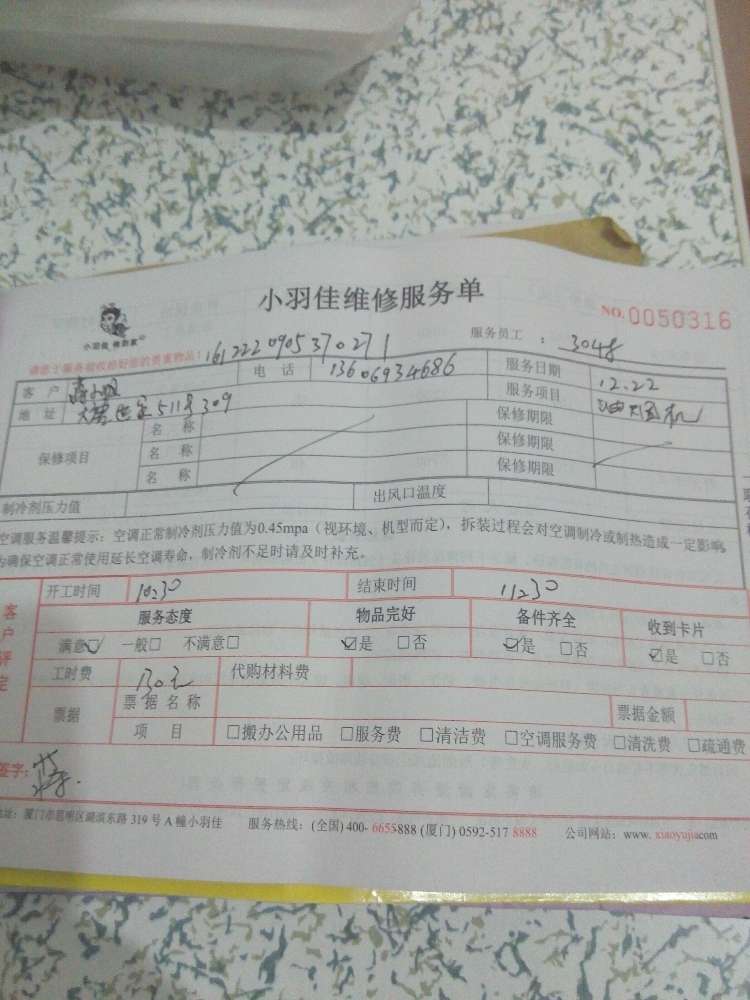 小羽佳维修服务单
NO.0050316
小羽佳
请您于服务前收拾好您的贵重物品！161222 0905370271
服务员工 ： 3048
客 户 蒋小姐 电 话 13606934686 服务日期 12.22
地 址 511号309 服务项目 油烟机
保修项目 名 称 保修期限
名 称 保修期限
名 称 保修期限
制冷剂压力值 出风口温度
空调服务温馨提示：空调正常制冷剂压力值为0.45mpa（视环境、机型而定），拆装过程会对空调制冷或制热造成一定影响，
为确保空调正常使用延长空调寿命，制冷剂不足时请及时补充。
客户评定
开工时间 10:30 结束时间 11:30
服务态度 物品完好 备件齐全 收到卡片
满意☑ 一般□ 不满意□ ☑是 □否 ☑是 □否 ☑是 □否
工时费 130元 代购材料费
票据 票 据 名 称 票据金额
项 目 □搬办公用品 □服务费 □清洁费 □空调服务费 □清洗费 □疏通费
签字： 蒋
地址：厦门市思明区湖滨东路 319 号 A 幢小羽佳 服务热线：(全国) 400- 6655888 (厦门) 0592-517 8888 公司网站：www. xiaoyujia.com